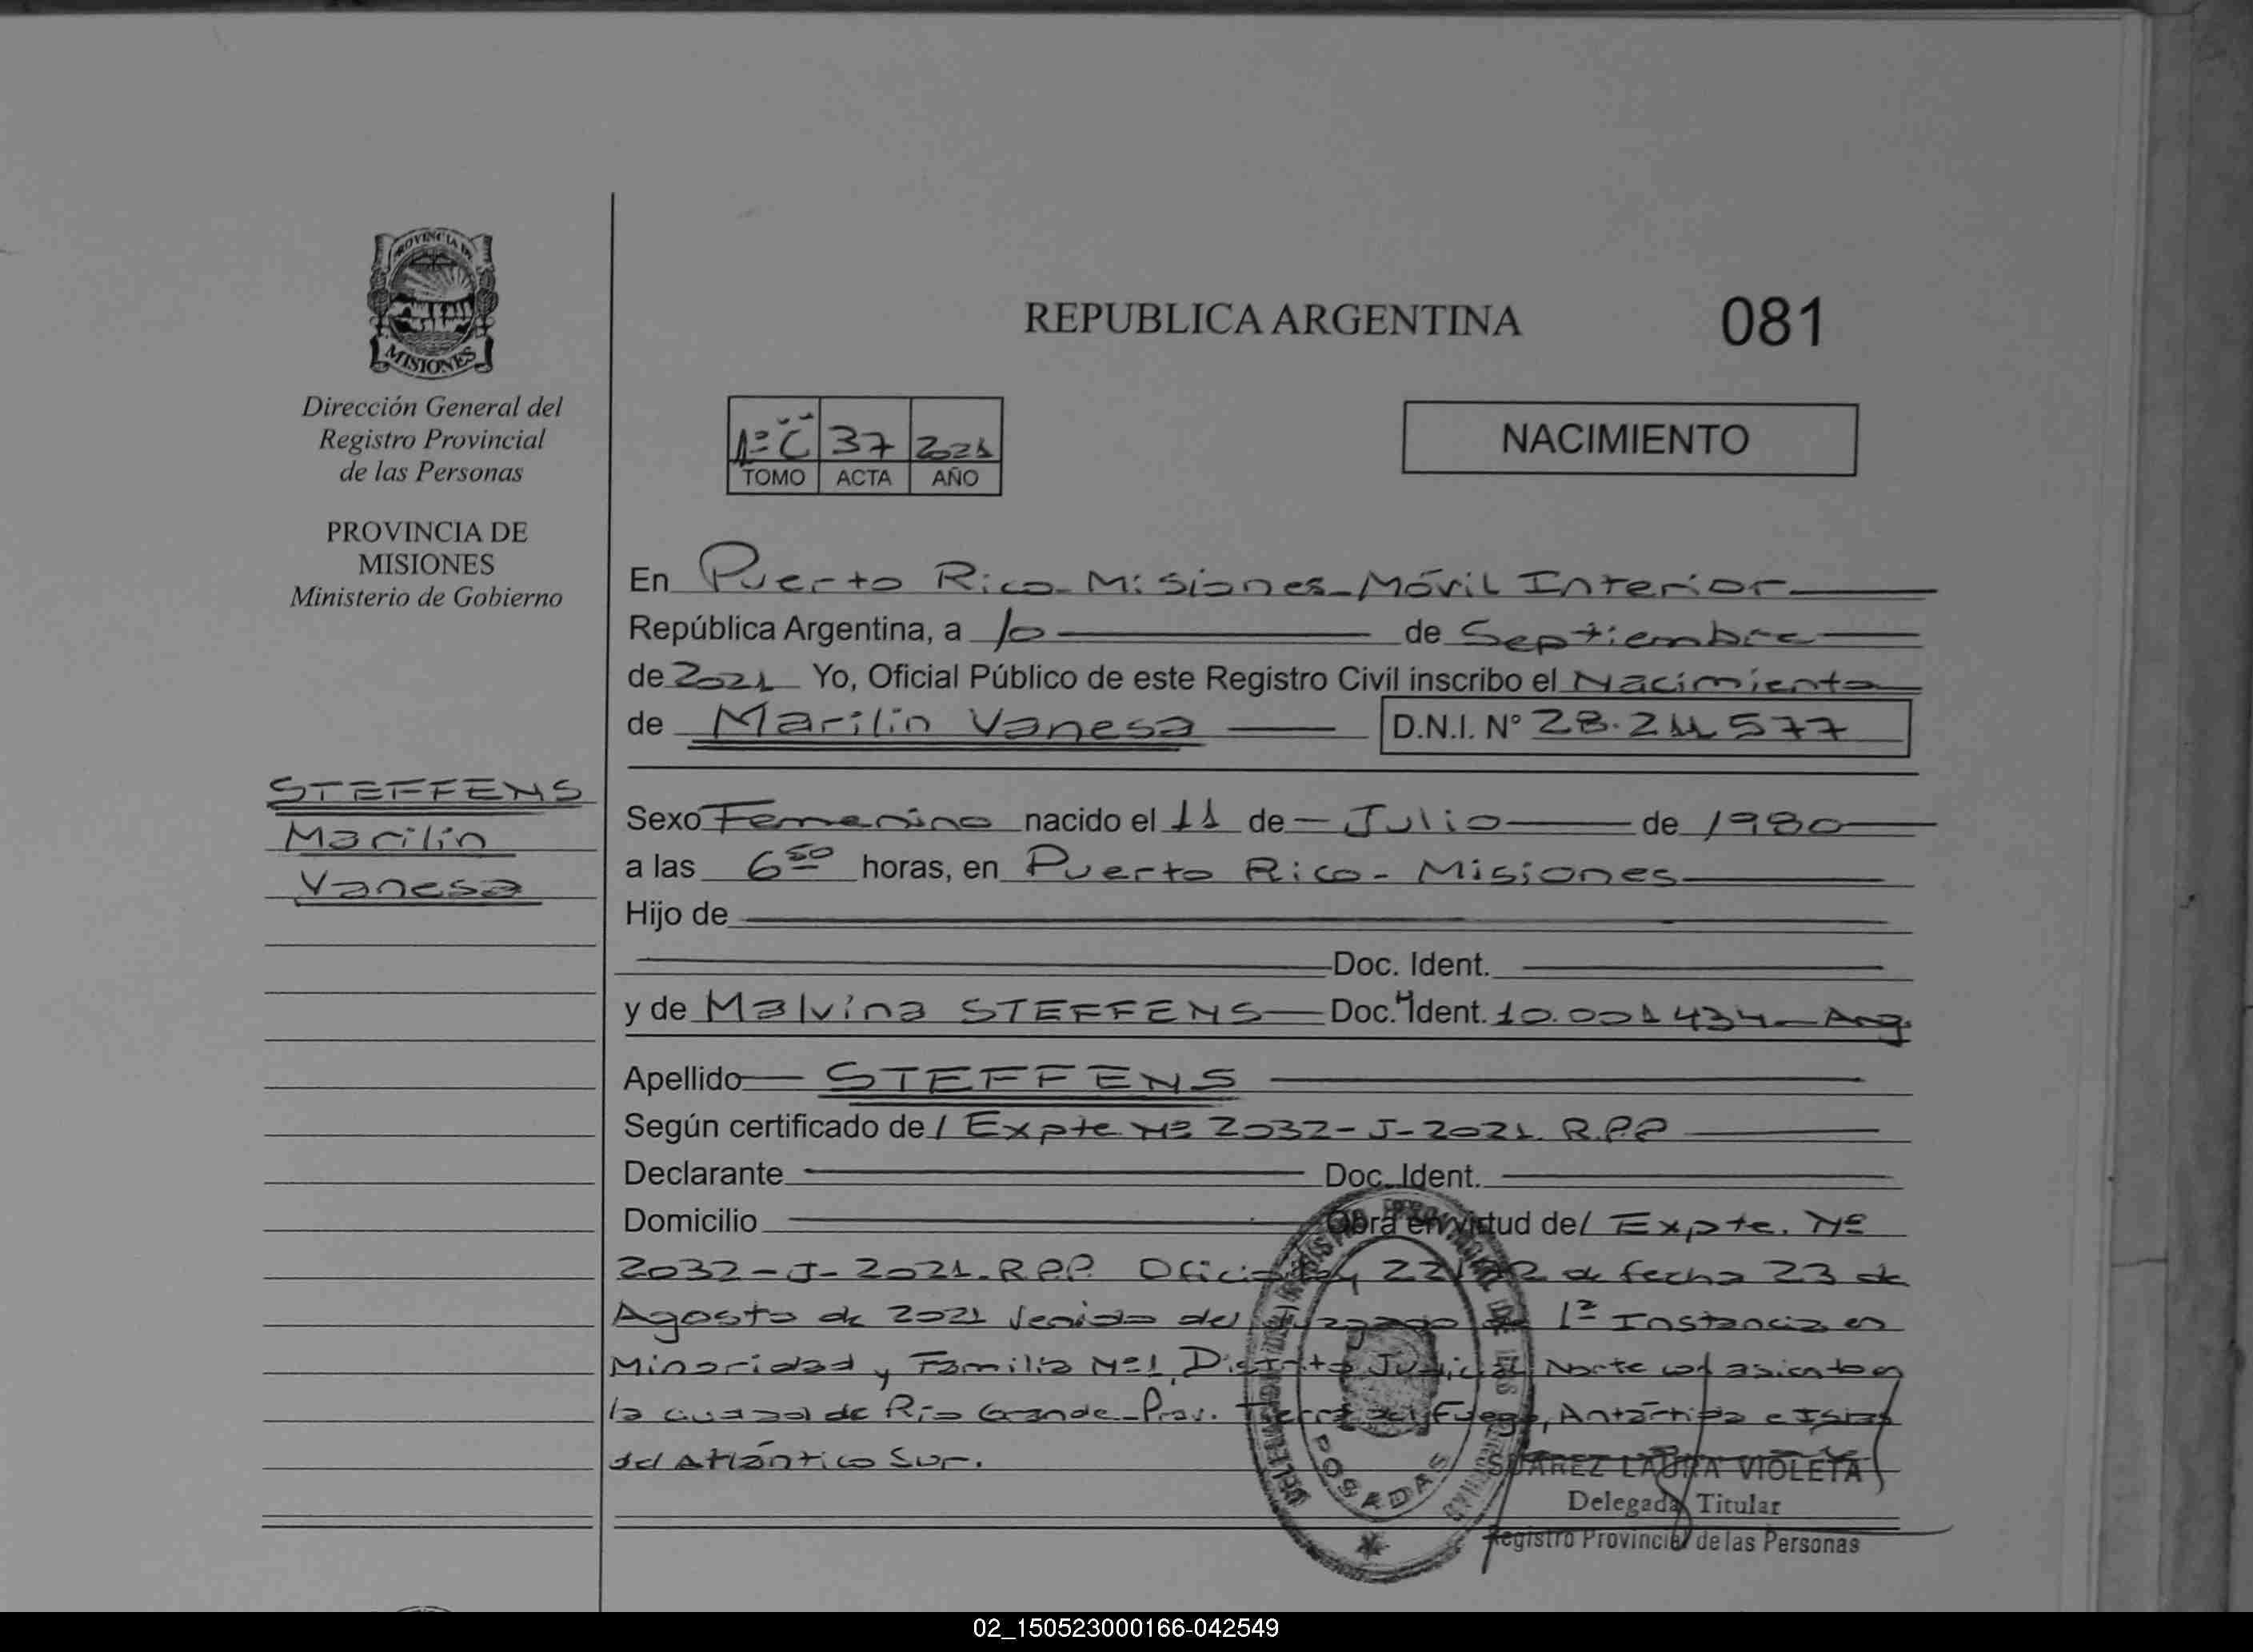 PROVINCIA DE
MISIONES
Dirección General del
Registro Provincial
de las Personas
PROVINCIA DE
MISIONES
Ministerio de Gobierno
STEFFENS
Marilin
Vanesa
REPUBLICA ARGENTINA 081
1º C 37 2021
TOMO ACTA AÑO
NACIMIENTO
En Puerto Rico - Misiones - Móvil Interior
República Argentina, a 10 de Septiembre
de 2021 Yo, Oficial Público de este Registro Civil inscribo el Nacimiento
de Marilin Vanesa D.N.I. N° 28.211.577
Sexo Femenino nacido el 11 de Julio de 1980
a las 6 50 horas, en Puerto Rico - Misiones
Hijo de
Doc. Ident.
y de Malvina STEFFENS Doc. Ident. 10.001434 - Arg.
Apellido STEFFENS
Según certificado de / Expte Nº 2032-J-2021. R.P.P
Declarante Doc. Ident.
Domicilio Obra en virtud de / Expte. Nº
2032-J-2021.R.P.P. de fecha 23 de
Agosto de 2021 venido del Juzgado de 1ª Instancia en
Minoridad y Familia Nº1, Distrito Judicial Norte con asiento en
la ciudad de Río Grande - Prov. Tierra del Fuego, Antártida e Islas
del Atlántico Sur.
POSADAS
SUAREZ LAURA VIOLETA
Delegada Titular
Registro Provincial de las Personas
02_150523000166-042549